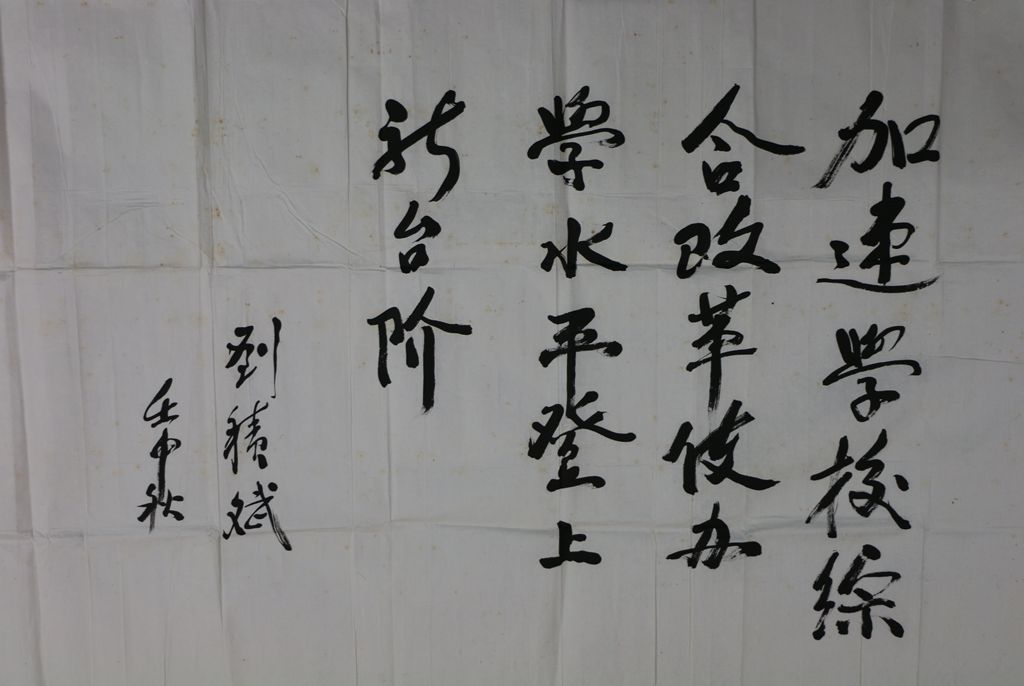 加速學校綜
合改革使办
學水平登上
新台阶
劉積斌
壬申秋